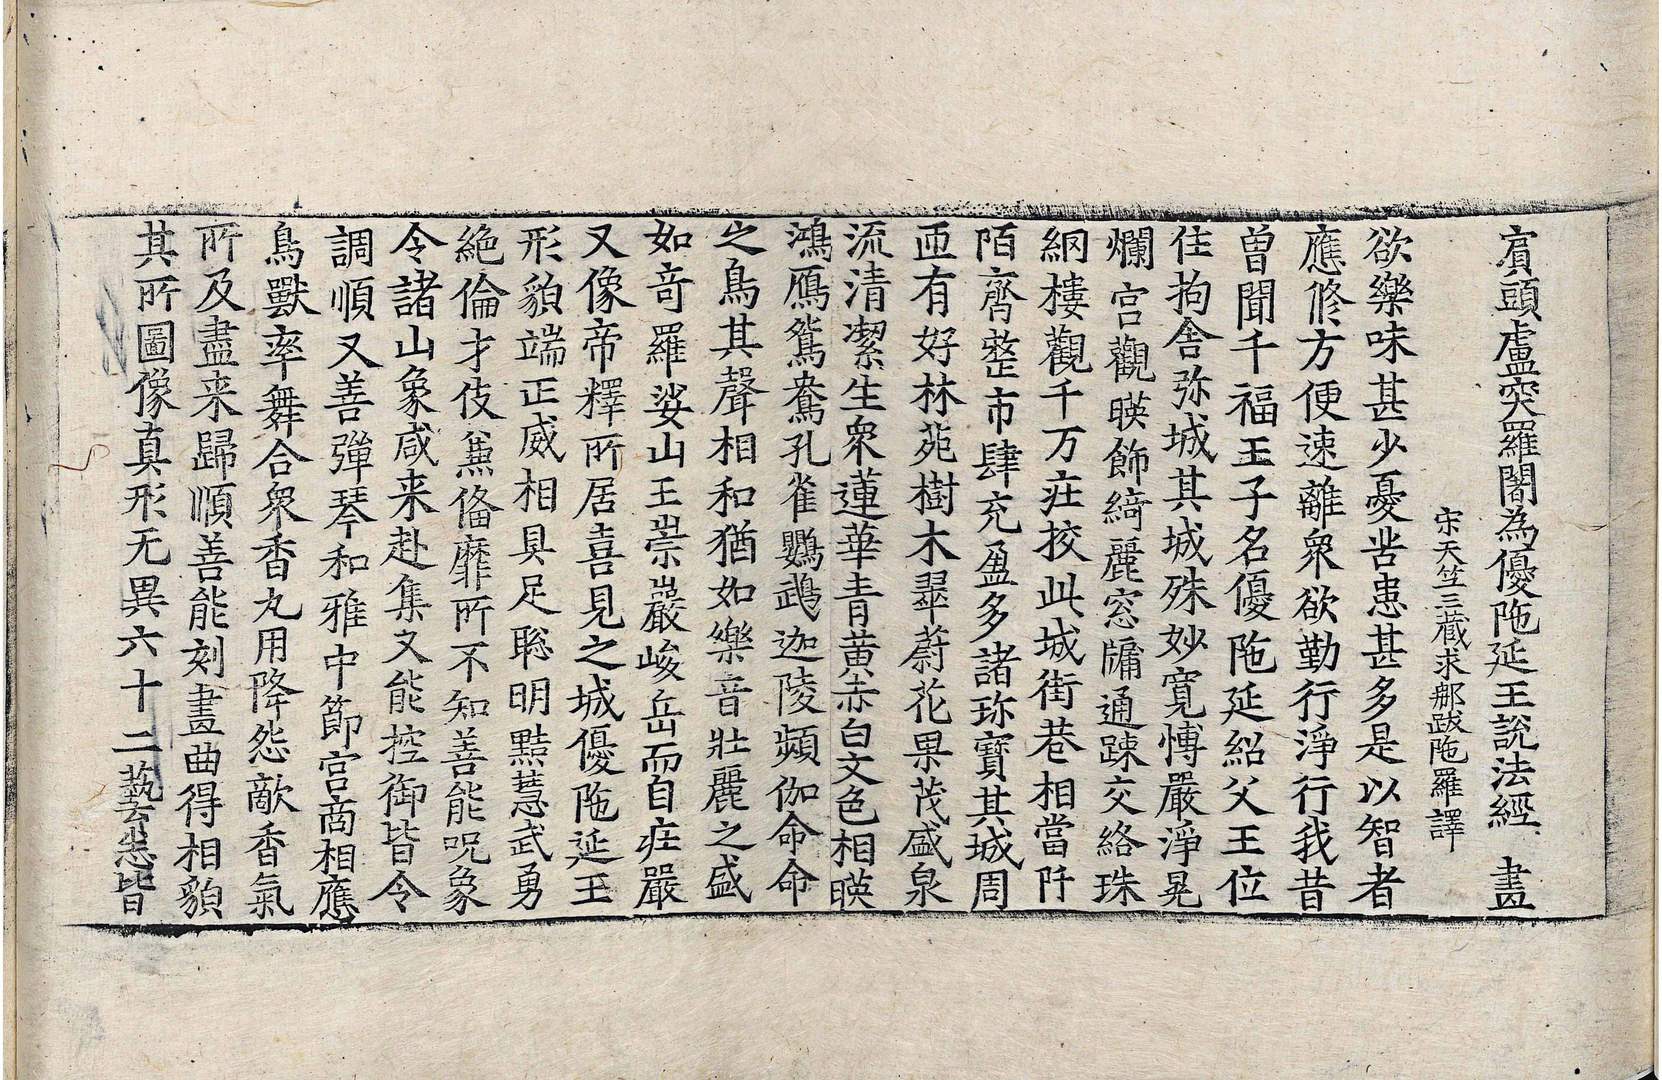 賓頭盧突羅闍為優陁延王說法經 畫
宋天竺三藏求郍跋陁羅譯
欲樂味甚少憂苦患甚多是以智者
應修方便速離衆欲勤行淨行我昔
曽聞千福王子名優陁延紹父王位
住拘舎弥城其城殊妙寛愽嚴淨晃
爛宫觀暎飾綺麗窓牖通踈交絡珠
網樓觀千万荘挍此城街巷相當阡
陌齊整市肆充盈多諸珎寶其城周
迊有好林苑樹木翠蔚花果茂盛泉
流清潔生衆蓮華青黄赤白文色相暎
鴻鴈鴛鴦孔雀鸚鵡迦陵頻伽命命
之鳥其聲相和猶如樂音壯麗之盛
如竒羅娑山王崇巖峻岳而自荘嚴
又像帝釋所居喜見之城優陁延王
形貌端正威相具足聡明黠慧武勇
絶倫才伎蒹俻靡所不知善能呪象
令諸山象咸来赴集又能控御皆令
調順又善彈琴和雅中節宫商相應
鳥獸率舞合衆香丸用降怨敵香氣
所及盡来歸順善能刻畫曲得相貌
其所圖像真形无異六十二藝悉皆